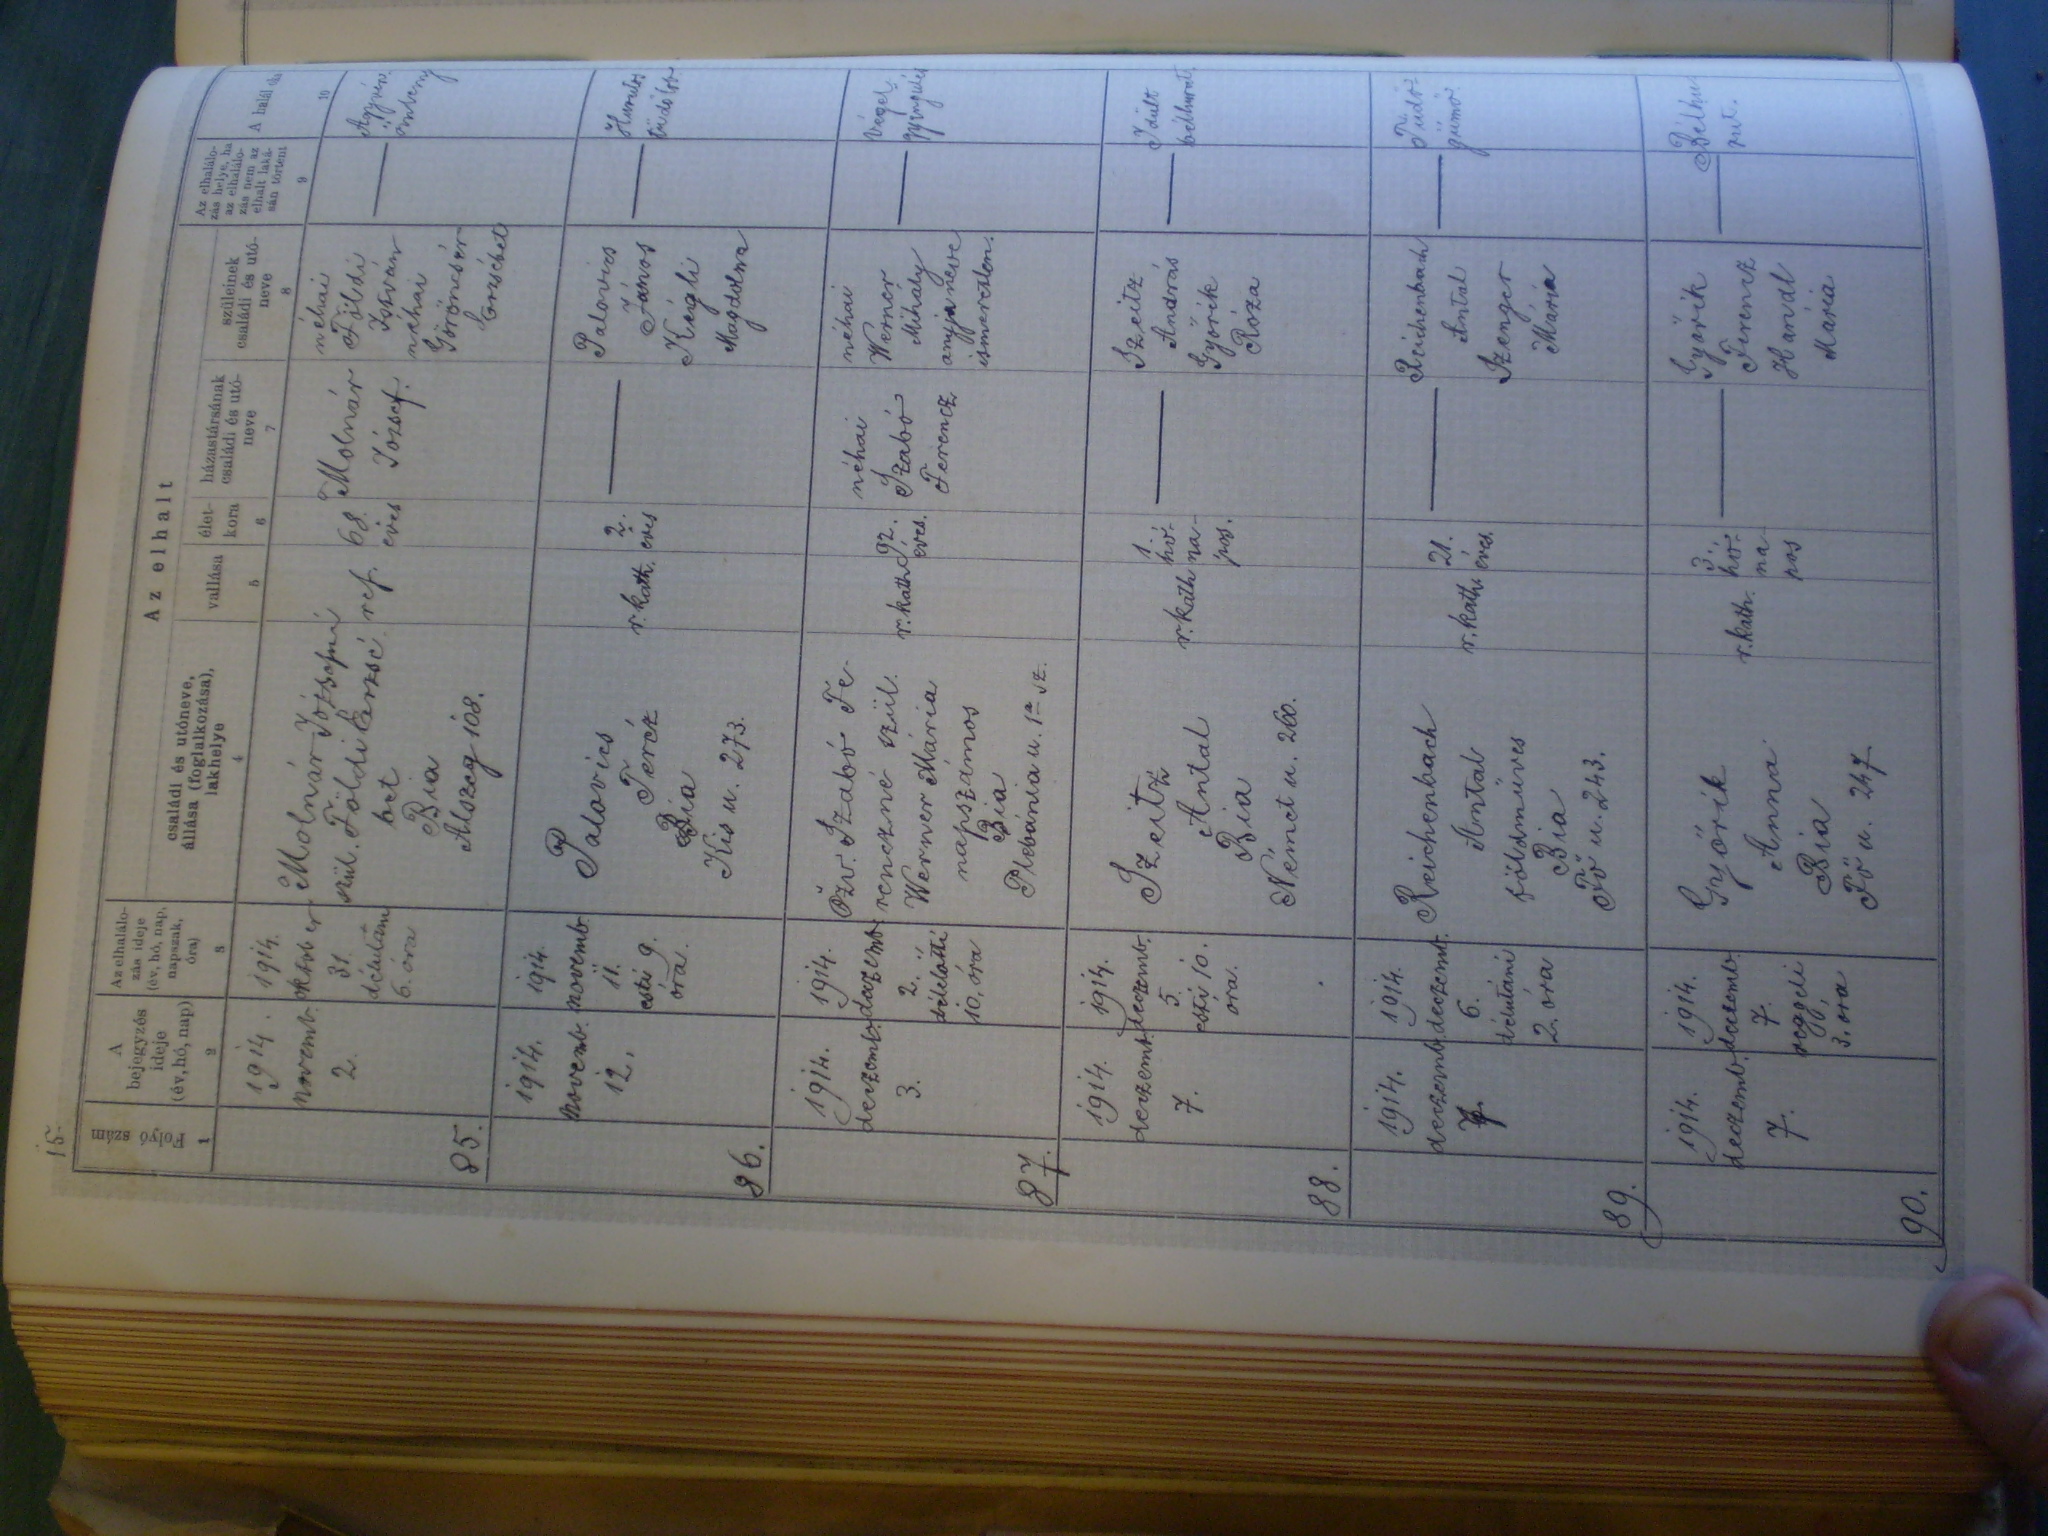 15.
Az elhalt
Folyó szám
A bejegyzés ideje (év, hó, nap)
Az elhalálo-
zás ideje
(év, hó, nap,
napszak,
óra)
családi és utóneve,
állása (foglalkozása),
lakhelye
vallása
élet-
kora
házastársának
családi és utó-
neve
szüleinek
családi és utó-
neve
Az elhalálo-
zás helye, ha
az elhalálo-
zás nem az
elhalt laká-
sán történt
A halál
1
2
3
4
5
6
7
8
9
10
85.
1914.
novemb.
2.
1914.
október
31.
délután
6. óra
Molnár Józsefné
szül. Földi Erzsé-
bet
Bia
Alszeg 108.
ref.
68.
éves
Molnár
József.
néhai
Földi
István
néhai
Erzsébet
86.
1914.
novemb.
12.
1914.
novemb.
11.
esti 9.
óra.
Palovics
Teréz
Bia
Kis u. 273.
r. kath.
2.
éves
Palovics
János
Kségli
Magdolna
87.
1914.
deczemb.
3.
1914.
deczemb.
2.
délelőtti
10. óra
Özv. Szabó Fe-
renczné szül.
Werner Mária
napszámos
Bia
Plébánia u. 1a sz.
r. kath.
92.
éves.
néhai
Szabó
Ferencz
néhai
Werner
Mihály
anyja neve
ismeretlen.
végel-
gyengülés
88.
1914.
deczemb.
7.
1914.
deczemb.
5.
esti 10.
óra.
Szeitz
Antal
Bia
Német u. 260.
r. kath
1.
hó-
na-
pos.
Szeitz
András
Győrik
Róza
Idült
bélhurut.
89.
1914.
deczemb.
7.
1914.
deczemb.
6.
délutáni
2. óra
Reichenbach
Antal
földműves
Bia
Fő u. 243.
r. kath.
21.
éves.
Reichenbach
Antal
Szenger
Mária
Tüdő-
gümő.
90.
1914.
deczemb.
7.
1914.
deczemb.
7.
reggeli
3. óra
Győrik
Anna
Bia
Fő u. 247
r. kath.
3.
hó-
na-
pos
Győrik
Ferencz
Handl
Mária
Bélhu-
rut.